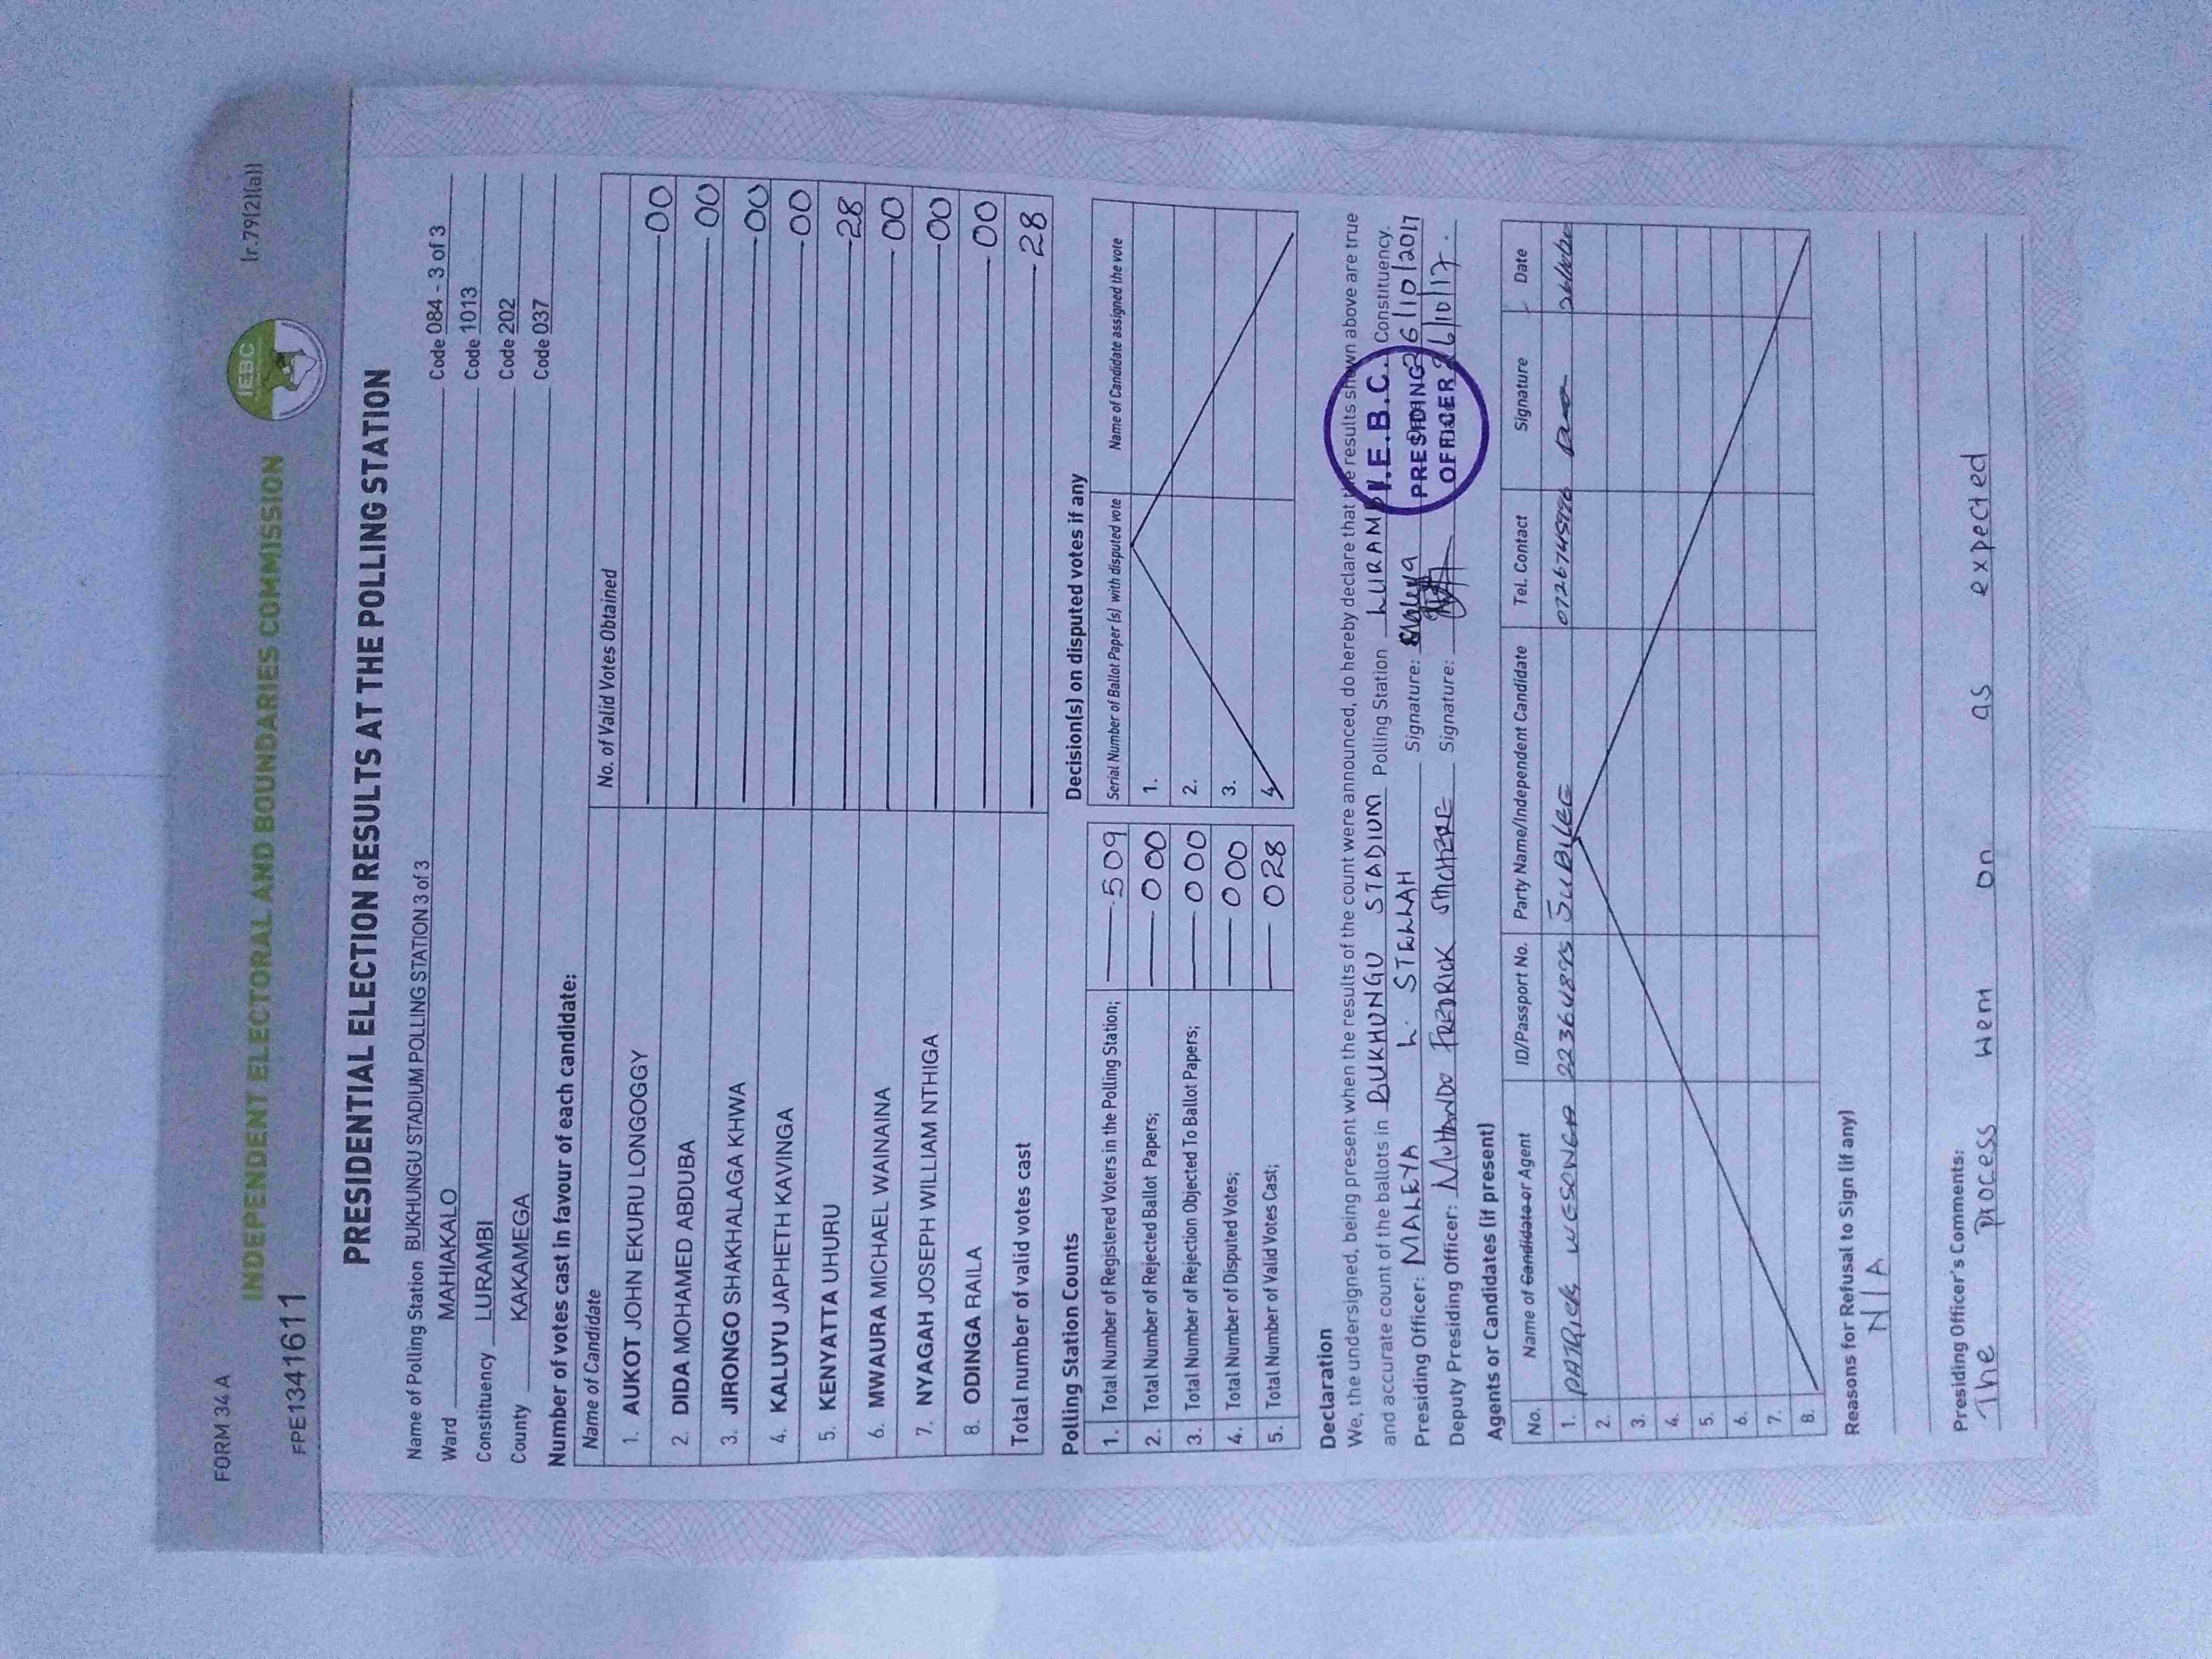 FORM 34 A
(r.79(2)(a))
INDEPENDENT ELECTORAL AND BOUNDARIES COMMISSION
IEBC
FPE1341611
PRESIDENTIAL ELECTION RESULTS AT THE POLLING STATION
Name of Polling Station BUKHUNGU STADIUM POLLING STATION 3 of 3 Code 084 - 3 of 3
Ward MAHIAKALO Code 1013
Constituency LURAMBI Code 202
County KAKAMEGA Code 037
Number of votes cast in favour of each candidate:
Name of Candidate No. of Valid Votes Obtained
1. AUKOT JOHN EKURU LONGOGGY 00
2. DIDA MOHAMED ABDUBA 00
3. JIRONGO SHAKHALAGA KHWA 00
4. KALUYU JAPHETH KAVINGA 00
5. KENYATTA UHURU 28
6. MWAURA MICHAEL WAINAINA 00
7. NYAGAH JOSEPH WILLIAM NTHIGA 00
8. ODINGA RAILA 00
Total number of valid votes cast 28
Polling Station Counts
1. Total Number of Registered Voters in the Polling Station; 509
2. Total Number of Rejected Ballot Papers; 000
3. Total Number of Rejection Objected To Ballot Papers; 000
4. Total Number of Disputed Votes; 000
5. Total Number of Valid Votes Cast; 028
Decision(s) on disputed votes if any
Serial Number of Ballot Paper (s) with disputed vote Name of Candidate assigned the vote
1.
2.
3.
4.
Declaration
We, the undersigned, being present when the results of the count were announced, do hereby declare that the results shown above are true
and accurate count of the ballots in BUKHUNGU STADIUM Polling Station LURAMBI Constituency.
Presiding Officer: MALEYA L. STELLAH Signature: 26/10/2017
Deputy Presiding Officer: MUHANDO FREDRICK SHICHERE Signature: 26/10/17.
I.E.B.C.
PRESIDING
OFFICER
Agents or Candidates (if present)
No. Name of Candidate or Agent ID/Passport No. Party Name/Independent Candidate Tel. Contact Signature Date
1. PATRICK WESONGA 22364895 JUBILEE
2.
3.
4.
5.
6.
7.
8.
Reasons for Refusal to Sign (if any)
N/A
Presiding Officer's Comments:
The process went on as expected